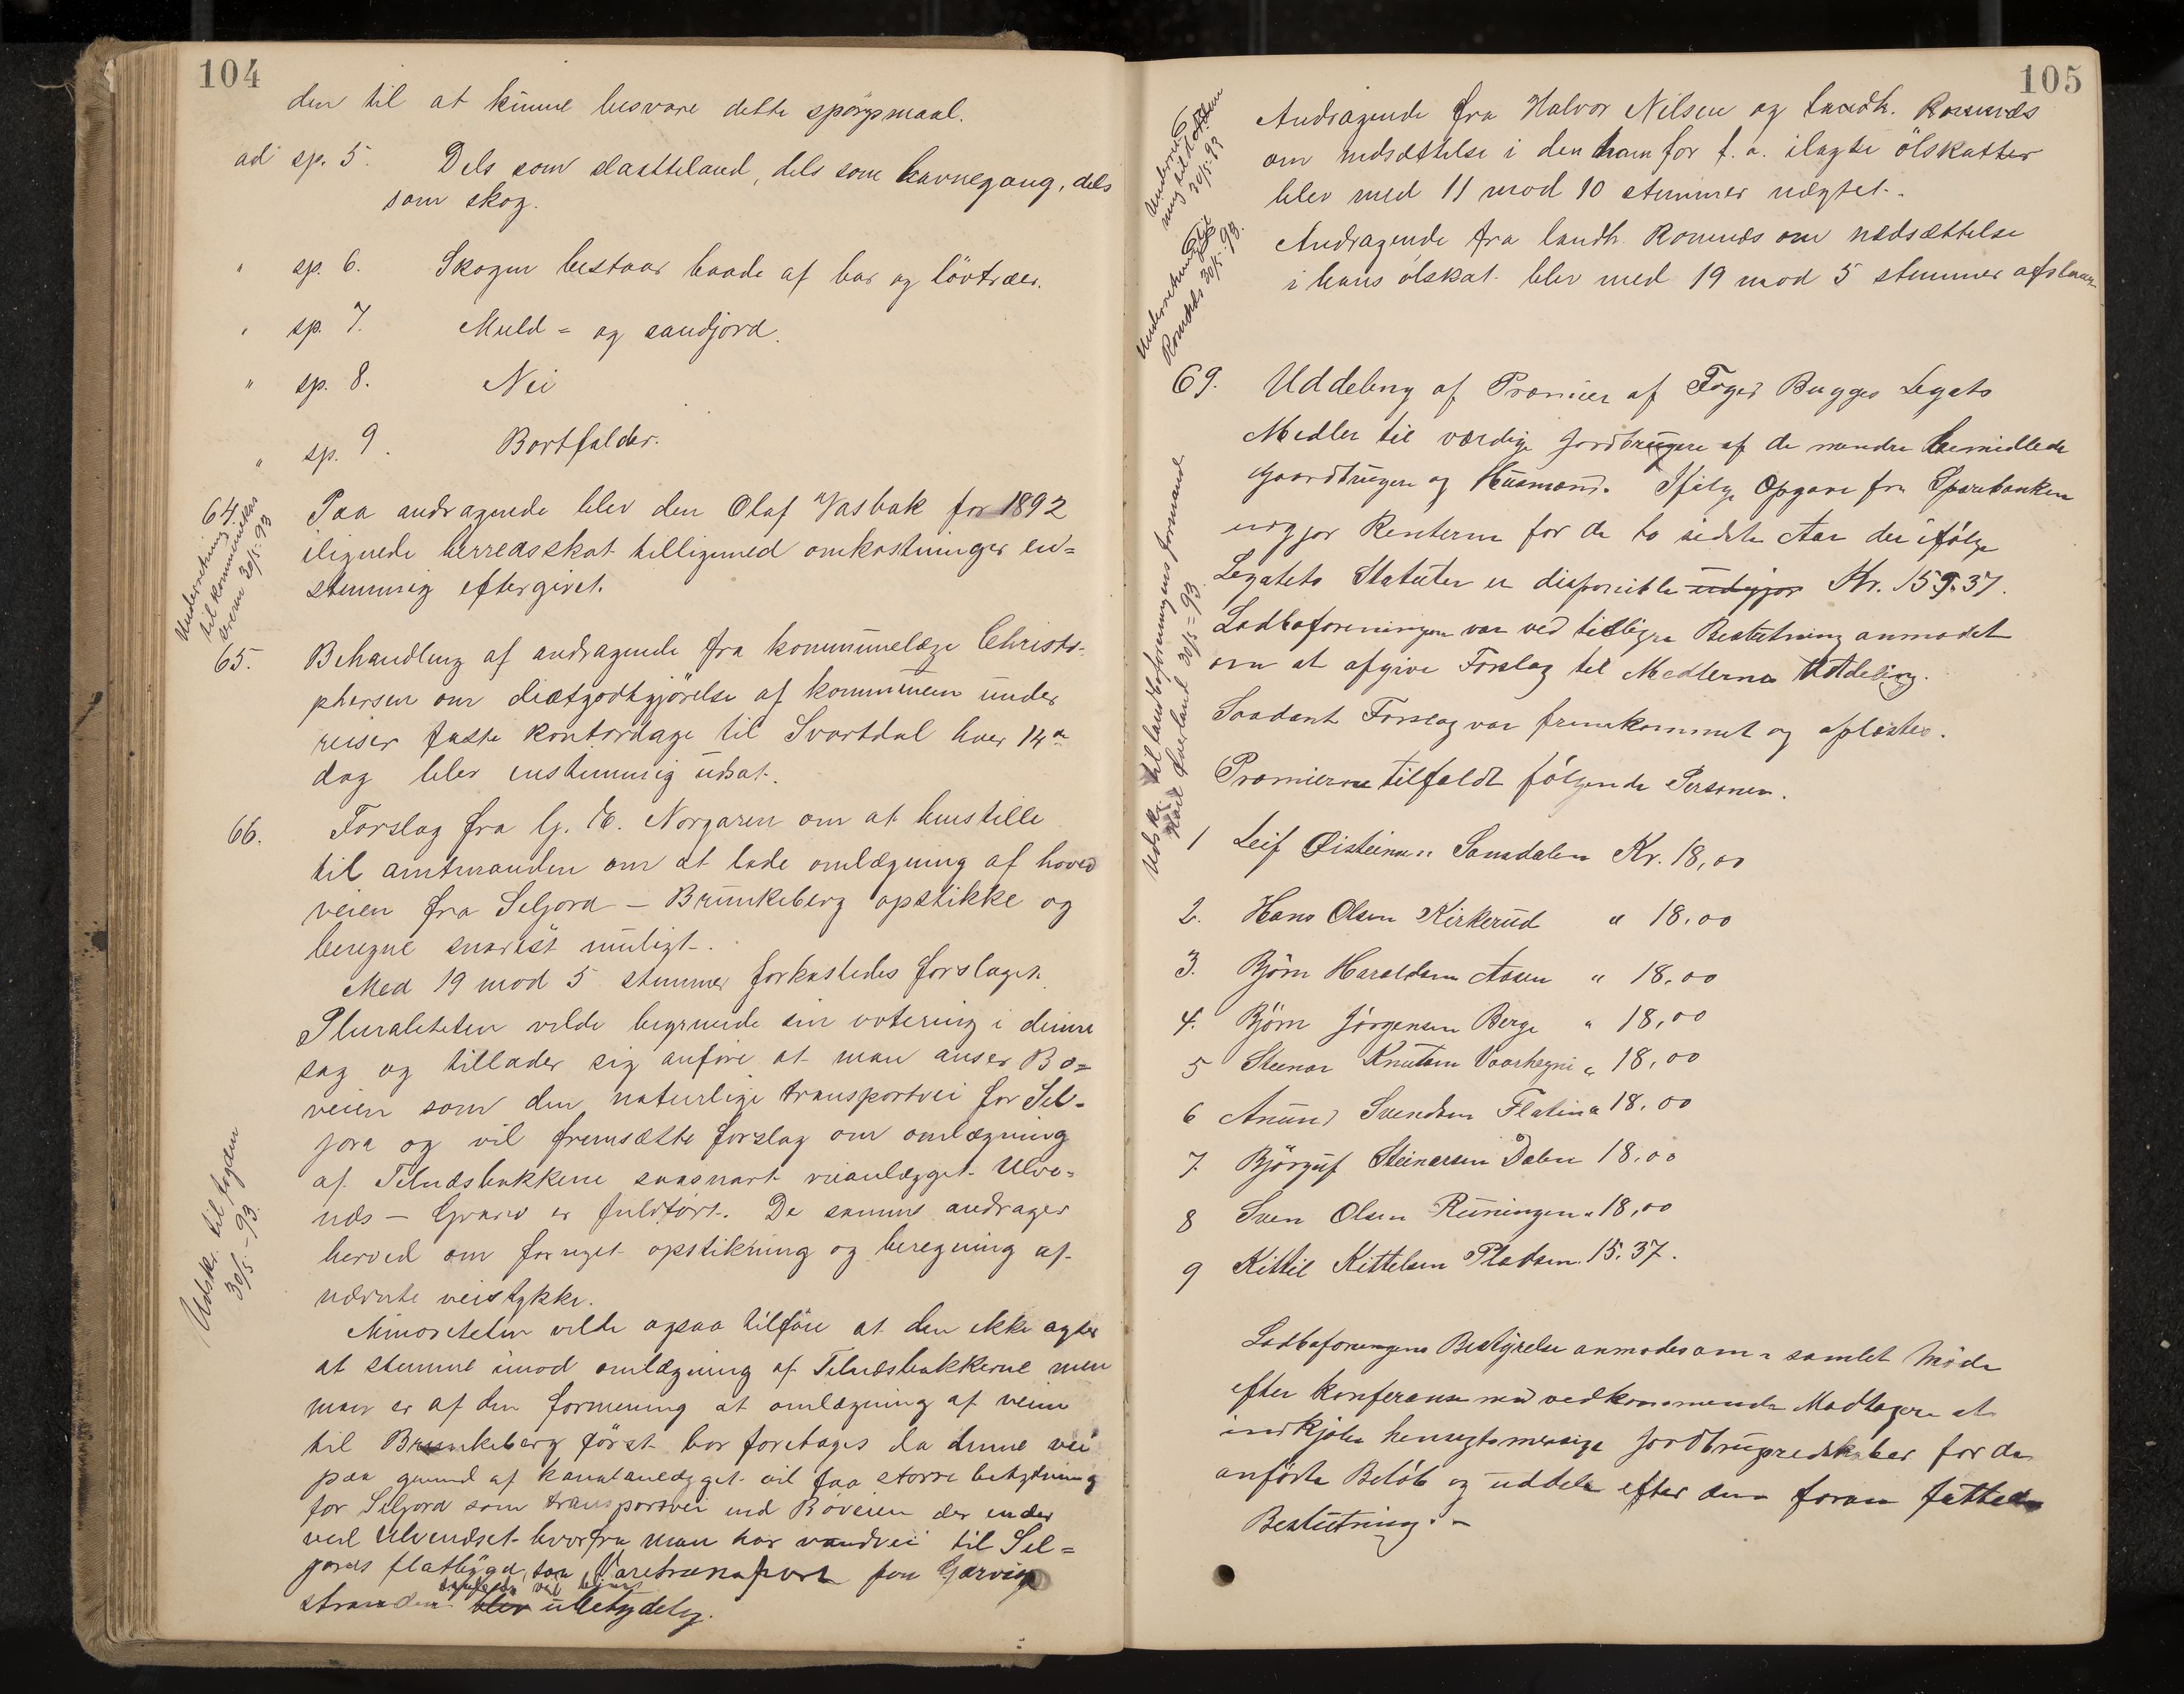 104
den til at kunne besvare dette spörgsmaal.
ad sp. 5. Dels som slaatteland, dels som havnegang, dels
som skog.
" sp. 6. Skogen bestaar baade af bar og lövtræer.
" sp. 7. Muld- og sandjord.
" sp. 8. Nei
" sp. 9. Bortfalder.
64. Paa andragende blev den Olaf Vasbak for 1892
ilignede herredsskat tilligemed omkostninger en-
stemmig eftergivet.
Underretning
til kommunekas
sereren 30/5-93
65. Behandling af andragende fra kommunelæge Christo-
phersen om diætgodtgjörelse af kommunen under
reiser faste kontordage til Svartdal hver 14de
dag blev enstemmig udsat.
66. Forslag fra G. E. Norgaren om at henstille
til amtmanden om at lade omlægning af hoved
veien fra Seljord - Brunkeberg opstikke og
beregne snarest muligt.
Med 19 mod 5 stemmer forkastedes forslaget.
Pluraliteten vilde begrunde sin votering i denne
sag og tillader sig anföre at man anser Bö-
veien som den naturlige transportvei for Sel-
jord og vil fremsætte forslag om omlægning
af Telnæsbakkene saasnart veianlægget Ulve-
næs - Gvarv er fuldfört. De samme andrager
herved om foreget opstikning og beregning af
nævnte veistykke.
Udskr. til fogden
30/5-93.
Minoriteten vilde ogsaa tilföie at den ikke agter
at stemme imod omlægning af Telnæsbakkerne men
man er af den formening at omlægning af veien
til Brunkeberg först bör foretages da denne vei
paa grund af kanalanlægget vil faa större betydning
for Seljord som transportvei end Böveien der ender
ved Ulvenæset hvorfra man har vandvei til Sel-
jords flatbygd, saa Varetransport fra Gjarvig
stranden blev ubetydelig.
105
Andragende fra Halvor Nilsen og landh. Romnæs
om nedsættelse i den ham for f. a. ilagte ölskatter
blev med 11 mod 10 stemmer nægtet.
Andragende fra landh. Romnæs om nedsættelse
i hans ölskat blev med 19 mod 5 stemmer afslaaet
30/5-93
Romnæs 30/5-93.
69. Uddeling af Præmier af Foged Bugges Legats
Midler til værdige Jordbrugere af de mindre bemidlede
Gaardbrugere og Husmænd. Ifølge Opgave fra Sparebanken
udgjør Renterne for de to sidste Aar der ifölge
Legatets Statuter er disponible udgjør Kr. 159.37.
Ladboforeningen var ved tidligere Beslutning anmodet
om at afgive Forslag til Midlernes Uddeling.
Saadant Forslag var fremkommet og oplæstes.
Præmierne tilfaldt fölgende Personer.
Udskr. til landboforeningens formand
30/5-93
1 Leif Øisteinsen Sandalen Kr. 18,00
2. Hans Olsen Kirkerud " 18.00
3. Björn Haraldsen Aasen " 18.00
4. Björn Jörgensen Berge " 18,00
5 Steinar Knutsen Vaarhegni " 18,00
6 Anund Svendsen Flatin " 18.00
7. Björguf Steinarsen Dalen 18.00
8 Sven Olsen Runingen " 18,00
9 Kittil Kittelsen Pladsen. 15.37.
Ladboforeningens Bestyrelse anmodes om i samlet Möde
efter Konferanse med vedkommende Modtagere at
indkjöbe hensigtsmæssige Jordbrugsredskaber for de
anförte Belöb og uddele efter den foran fattede
Beslutning. -